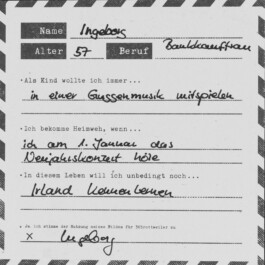 Name Ingeborg
Alter 57 Beruf Bankkauffrau
·Als Kind wollte ich immer...
in einer Guggenmusik mitspielen
·Ich bekomme Heimweh, wenn...
ich am 1. Januar das
Neujahrskonzert höre
·In diesem Leben will ich unbedingt noch...
Irland kennenlernen
Ja ich stimme der Nutzung meines Bildes für
x Ingeborg